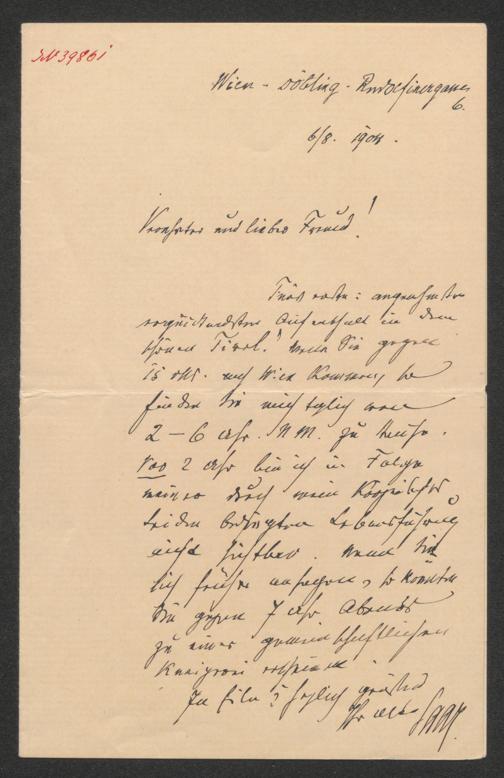 IN 39861
Wien - Döbling - Rudolfinergasse
6.
6/8. 1904.
Verehrter und lieber Freund!
Fürs erste: angenehmsten
erquickendsten Aufenthalt in dem
schönen Tirol! Wenn Sie gegen
15 nach Wien kommen, so
finden Sie mich täglich von
2 – 6 Uhr. N.M. zu Hause.
Vor 2 Uhr bin ich in Folge
meiner durch mein
leiden bedingten Lebensführung
nicht sichtbar. Wenn Sie
sich früher ansagen, so könnten
Sie gegen 7 Uhr Abends
zu einer gemeinschaftlichen
erscheinen.
In Eile herzlich grüßend
Ihr alter Saar.